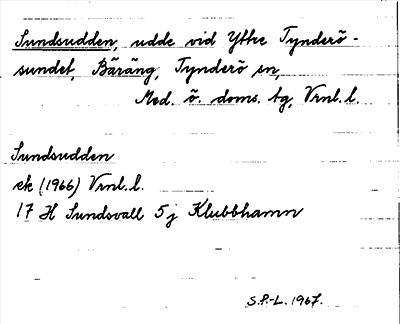 Sundsudden, udde vid Yttre Tynderö-
sundet, Bäräng, Tynderö sn,
Med. ö. doms. tg, Vrnl. l.
Sundsudden
ek (1966) Vrnl. l.
17 H Sundsvall 5 j Klubbhamn
S.P.-L. 1967.